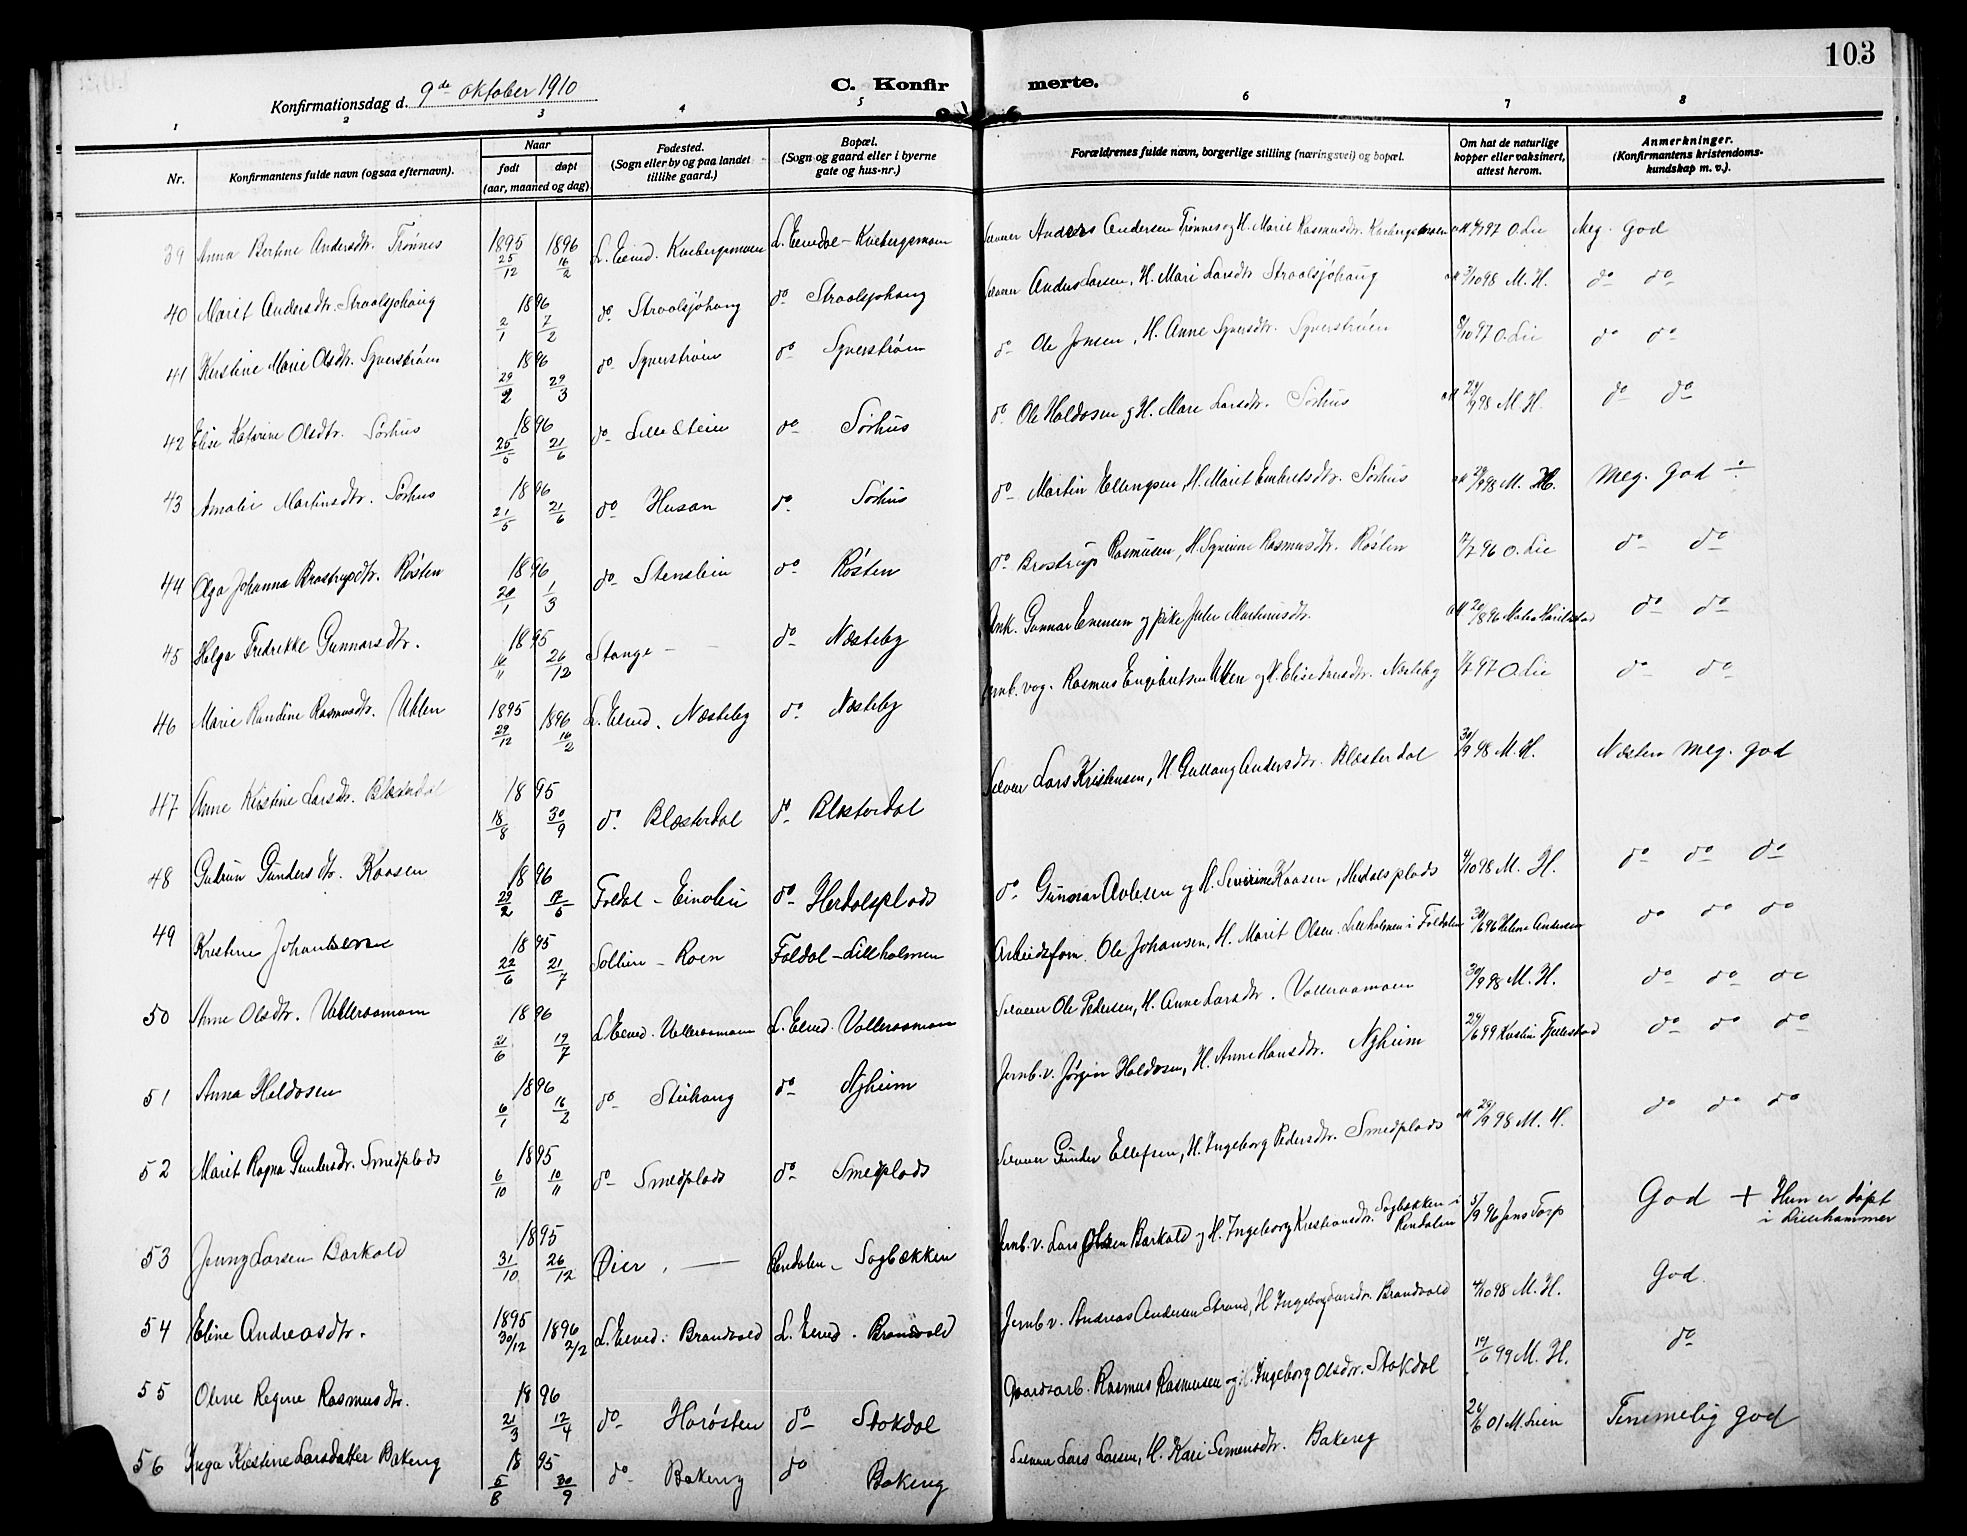 103
Konfirmationsdag d. 9de oktober 1910
C. Konfirmerte.
1 2 3 4 5 6 7 8
Nr.
Konfirmantens fulde navn (ogsaa efternavn).
Naar
født døpt
(aar, maaned og dag)
Fødested.
(Sogn eller by og paa landet
tillike gaard.)
Bopæl.
(Sogn og gaard eller i byerne
gate og hus-nr.)
Forældrenes fulde navn, borgerlige stilling (næringsvei) og bopæl.
Om hat de naturlige
kopper eller vaksinert,
attest herom.
Anmerkninger.
(Konfirmantens kristendoms-
kundskap m. v.).
39 Anna Bertine Andersdtr. Trønnes 1895 25/12 1896 16/2 L. Elvd. Kvebergsmoen L. Elvedal - Kvebergsmoen Selveier Anders Andersen Trønnes og H. Marit Rasmusdtr. Kvebergsmoen 97 O. Lie Meg. god
40 Marit Andersdtr. Straalsjøhaug 1896 2/1 7/2 do Straalsjøhaug do Straalsjøhaug Selveier Anders Larsen, H. Mari Larsdtr. Straalsjøhaug 3/10 98 M. H. do do
41 Kirstine Marie Olsdtr. Syverstrøen 1896 29/2 29/3 do Syverstrøen do Syverstrøen do Ole Jonsen, H. Anne Syversdtr. Syverstrøen 8/10 97 O. Lie do do
42 Elise Katrine Olsdtr. Sørhus 1896 25/5 21/6 do Lille Stein do Sørhus do Ole Haldosen og H. Mari Larsdtr. Sørhus 29/9 98 M. H. do do
43 Amalie Martinsdtr. Sørhus 1896 21/5 21/6 do Husan do Sørhus do Martin Ellingsen, H. Marit Embretsdtr. Sørhus 29/9 98 M. H. Meg. god ÷
44 Olga Johanna Brostrupdtr. Røsten 1896 20/1 1/3 do Stenslein do Røsten do Brostrup Rasmusen, H. Syverine Rasmusdtr. Røsten 17/7 96 O. Lie do do
45 Helga Fredrikke Gunnarsdtr. 1895 16/11 26/12 Stange - - do Næsteby Enk. Gunnar Evensen og pike Julie Martinusdtr. 20/8 96 do do
46 Marie Randine Rasmusdtr. Ublen 1895 29/12 1896 16/2 L. Elvd. Næsteby do Næsteby Jernb. vog. Rasmus Engebretsen Ublen og H. Elise Iversdtr. Næsteby 97 O. Lie do do
47 Anne Kristine Larsdtr. Blæsterdal 1895 18/8 30/9 do Blæsterdal do Blæsterdal Selveier Lars Kristensen, H. Gullaug Andersdtr. Blæsterdal 30/9 98 M. H. Næsten meg. god
48 Gudrun Gundersdtr. Kaasen 1896 29/2 17/5 Foldal - Einolin do Herdalsplads do Gunnar Avlesen og H. Severine Kaasen, Herdalsplads 4/10 98 M. H. do do do
49 Kristine Johansen 1895 22/6 21/7 Sollien - Roen Foldal - Lilleholmen Arbeidsform. Ole Johansen, H. Marit Olsen. Lilleholmen i Foldalen 30/6 96 Helene Andersen do do do
50 Anne Olsdtr. Volleraamoen 1896 21/6 19/7 L. Elvd. Volleraamoen L. Elvd. Volleraamoen Selveier Ole Pedersen, H. Anne Larsdtr. Volleraamoen 30/9 98 M. H. do do do
51 Anna Haldosen 1896 6/1 16/2 do Stuhaug do Nyheim Jernb. v. Jørgen Haldosen, H. Anne Hansdtr. Nyheim 29/6 99 Kirstin Fjellestad do do do
52 Marit Ragna Gundersdtr. Smedplads 1895 6/10 10/11 do Smedplads do Smedplads Selveier Gunder Ellefsen, H. Ingeborg Pedersdtr. Smedplads 29/9 98 M. H. do do do
53 Jenny Larsen Barkald 1895 31/10 26/12 Øier. — Rendalen - Sagbækken Jernb. v. Lars Olsen Barkald og H. Ingeborg Kristiansdtr. Sagbækken i Rendalen 5/9 96 Jens Torp God + Hun er døpt i Lillehammer
54 Eline Andreasdtr. 1895 30/12 1896 2/2 L. Elvd. Brandvold L. Elvd. Brandvold Jernb. v. Andreas Andersen Strand, H. Ingeborg Larsdtr. Brandvold 4/10 98 M. H. God.
55 Oline Regine Rasmusdtr. 1896 21/3 12/4 do Harøsten do Stokdal Gaardsarb. Rasmus Rasmusen og H. Ingeborg Olsdtr. Stokdal 19/6 99 M. H. do
56 Inga Kristine Larsdatter Bakeng 1895 5/8 30/9 do Bakeng do Bakeng Selveier Lars Larsen, H. Kari Simensdtr. Bakeng 26/6 01 M. Lien Temmelig god